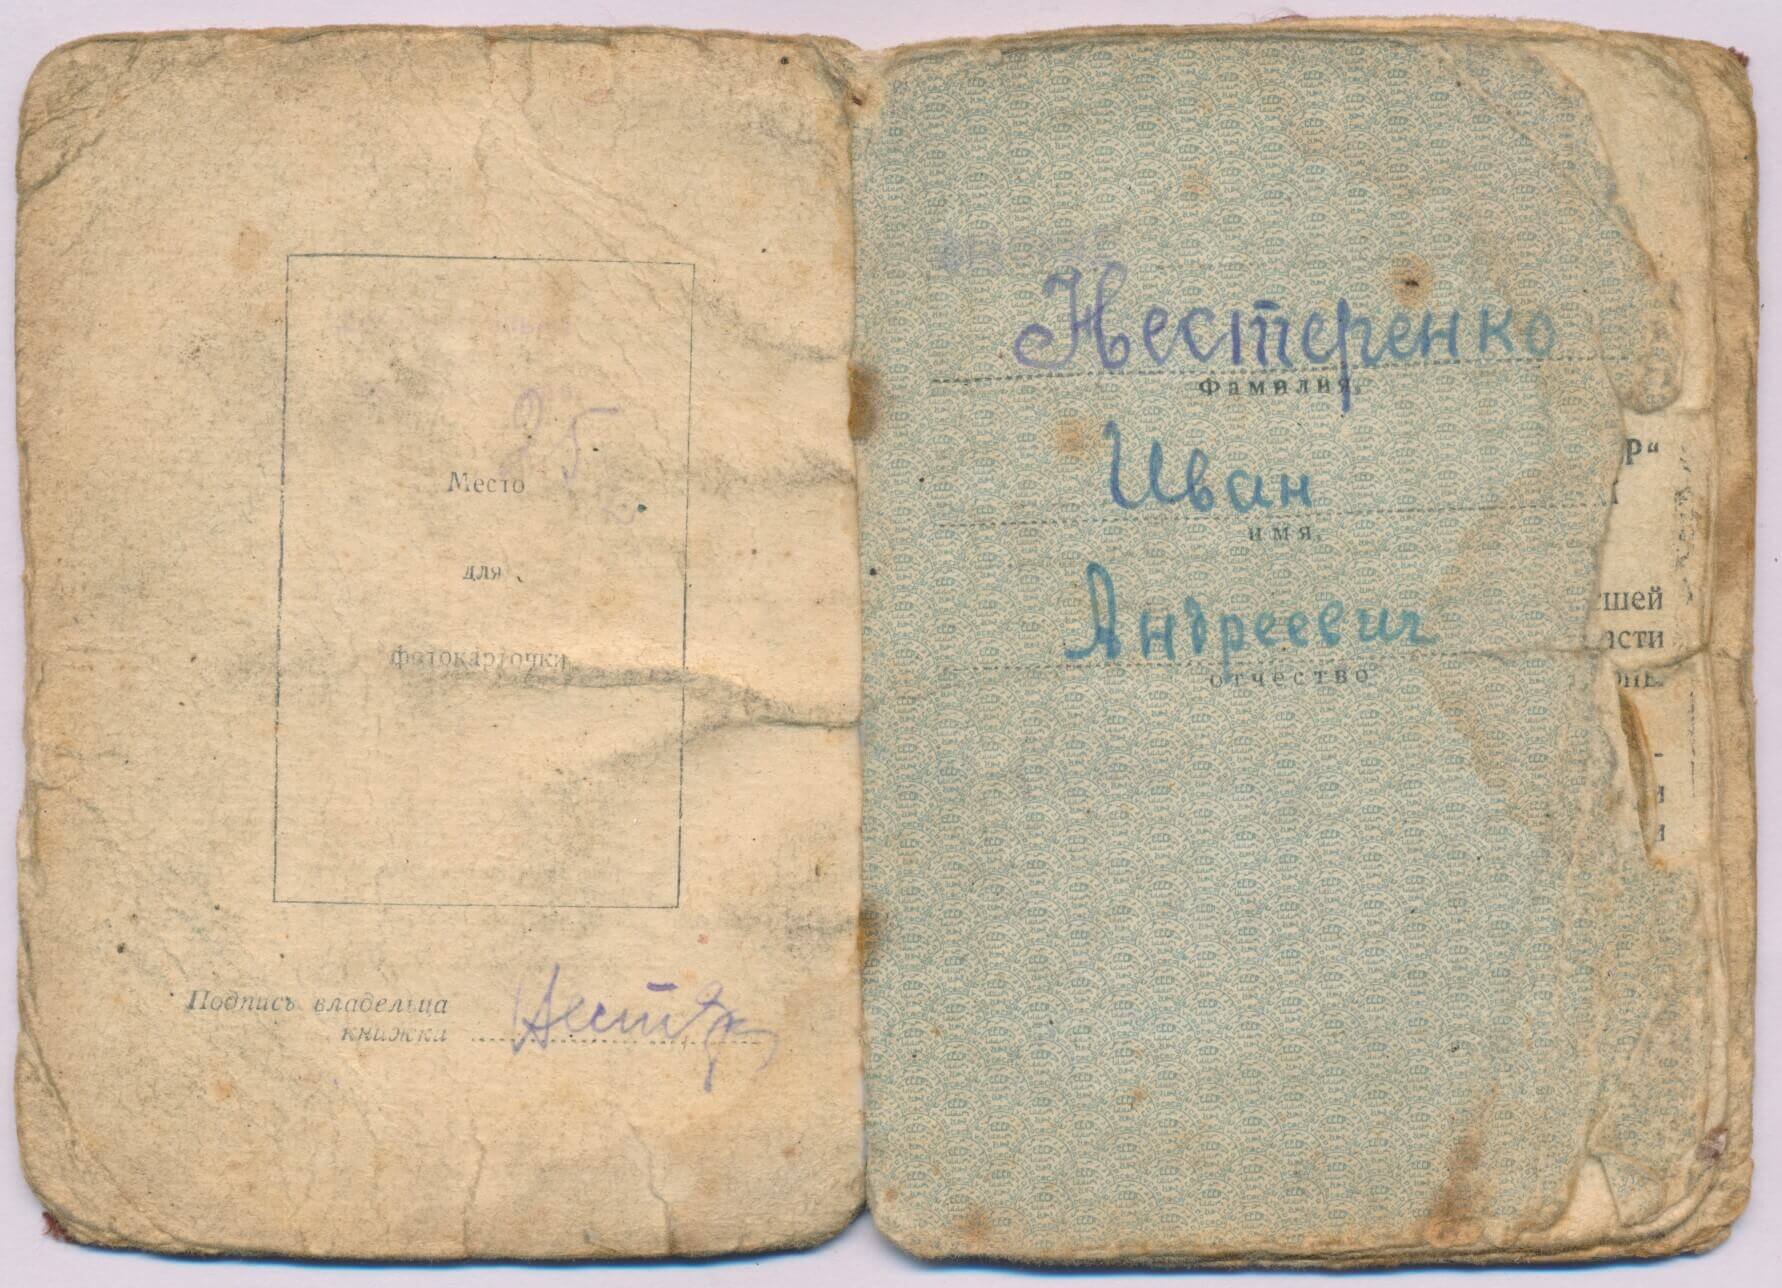 Место
для
фотокарточки
Подпись владельца
книжки
Нестеренко
фамилия,
Иван
имя,
Андреевич
отчество
Р"
сшей
асти